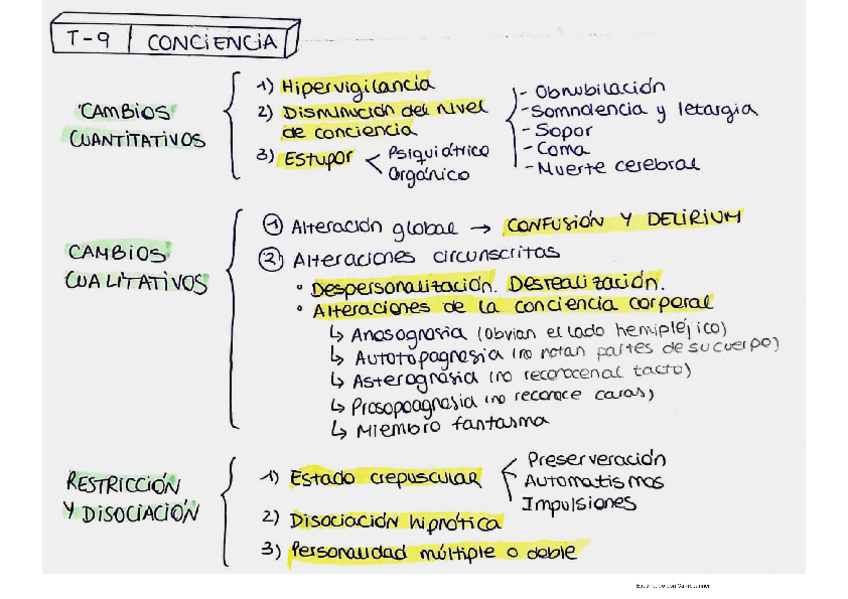 T-9 | CONCIENCIA
CAMBIOS
CUANTITATIVOS
1) Hipervigilancia
2) Disminución del nivel
de conciencia
3) Estupor
Psiquiátrico
Orgánico
- Obnubilación
- Somnolencia y letargia
- Sopor
- Coma
- Muerte cerebral
CAMBIOS
CUALITATIVOS
1 Alteración global → CONFUSIÓN Y DELIRIUM
2 Alteraciones circunscritas
• Despersonalización. Desrealización.
• Alteraciones de la conciencia corporal
↳ Anosognosia (obvian el lado hemipléjico)
↳ Autotopagnosia (no notan partes de su cuerpo)
↳ Asterognosia (no reconocen al tacto)
↳ Prosopoagnosia (no reconoce caras)
↳ Miembro fantasma
RESTRICCIÓN
Y DISOCIACIÓN
1) Estado crepuscular
Preserveración
Automatismos
Impulsiones
2) Disociación hipnótica
3) Personalidad múltiple o doble